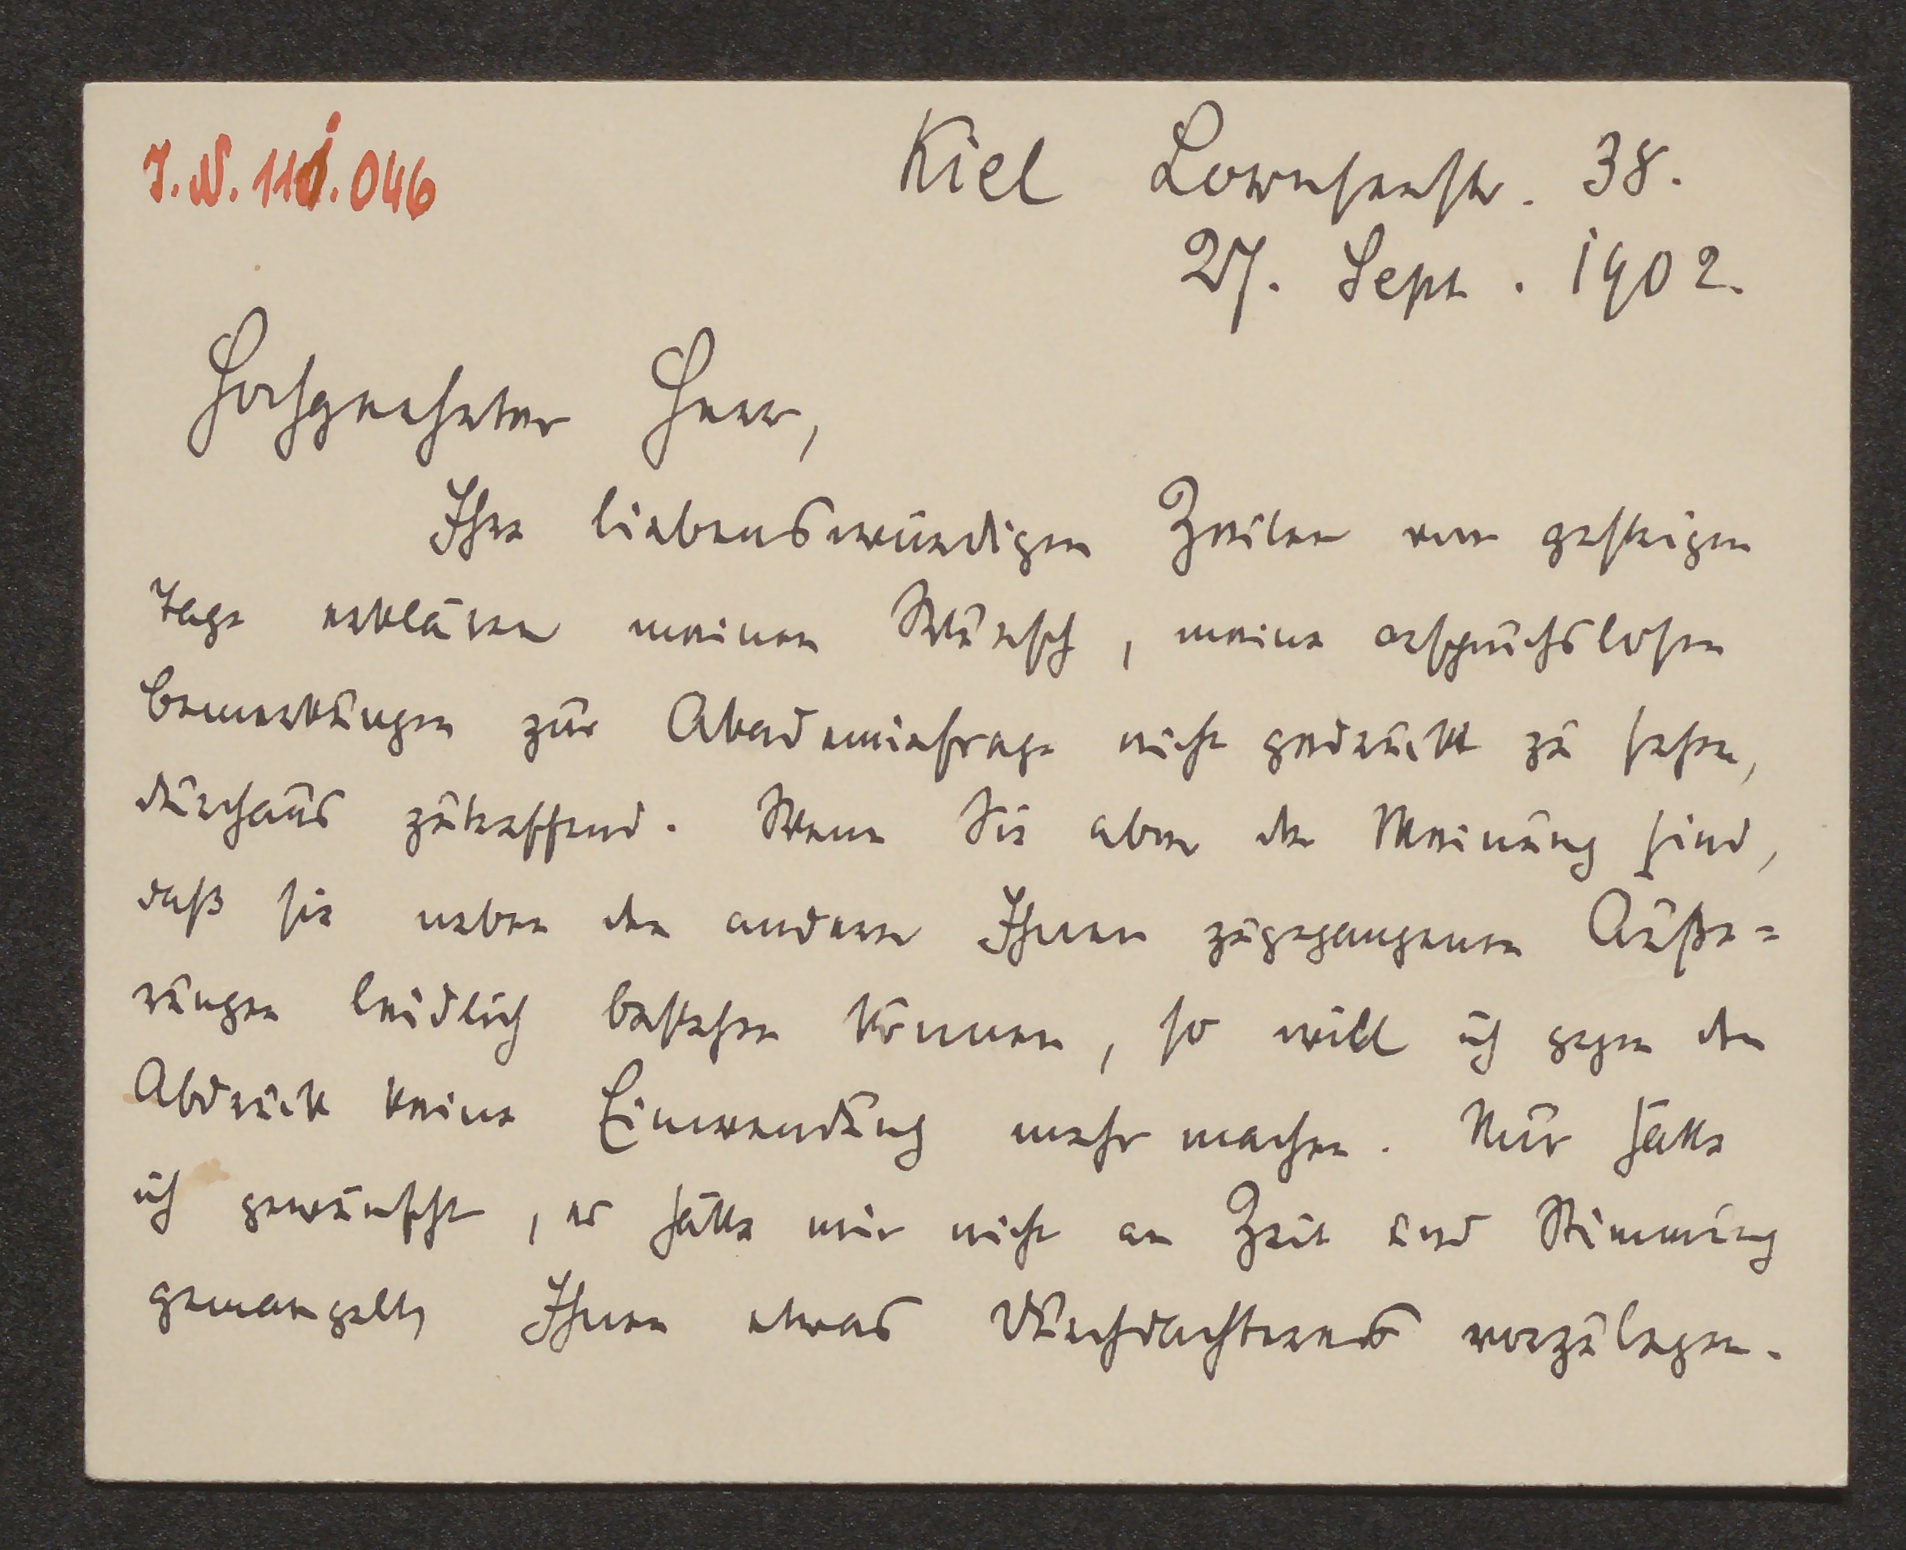 J.N. 110.046
Kiel Lornsenstr. 38.
27. Sept. 1902.
Hochgeehrter Herr,
Ihre liebenswürdigen Zeilen vom gestrigen
Tage erklären meinen Wunsch, meine anspruchslosen
Bemerkungen zur Akademiefrage nicht gedruckt zu sehen,
durchaus zutreffend. Wenn Sie aber der Meinung sind,
daß sie neben den anderen Ihnen zugegangenen Äuße=
rungen leidlich bestehen können, so will ich gegen den
Abdruck keine Einwendung mehr machen. Nur hätte
ich gewünscht, es hätte mir nicht an Zeit und Stimmung
gemangelt, Ihnen etwas Durchdachteres vorzulegen.